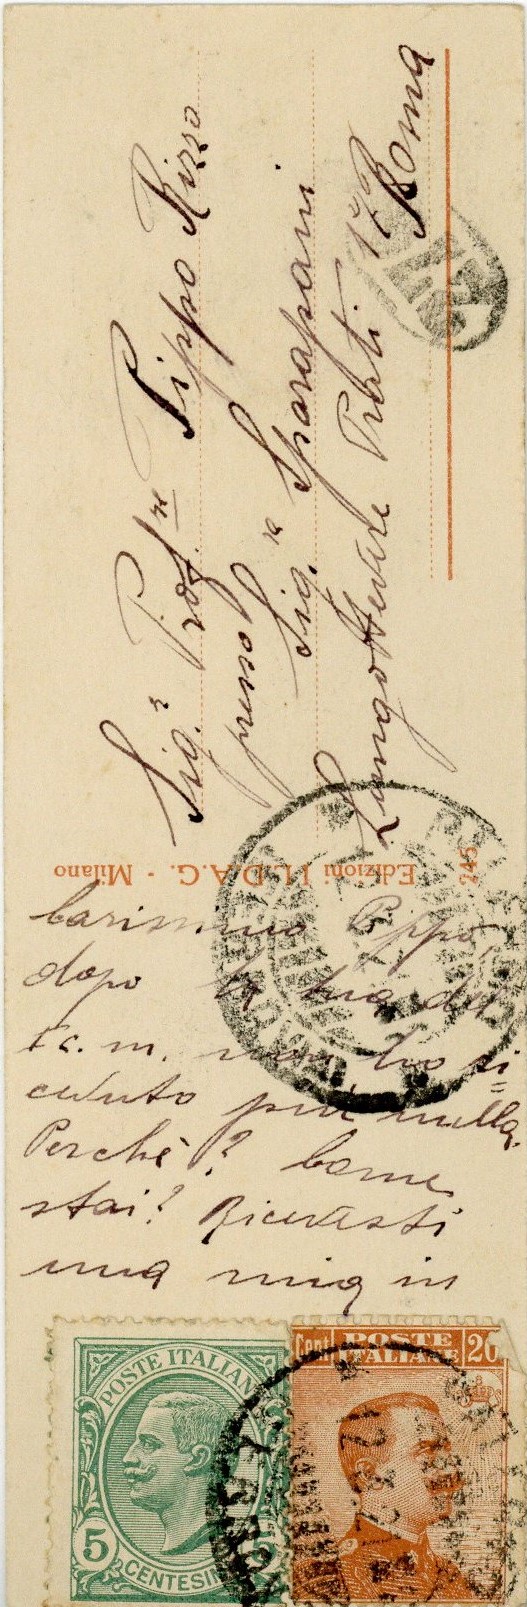 Sig.r Prof.re Pippo Rizzo
presso
Sig.ra Sparapani
Lungotevere Prati 17
Roma
245 Edizioni D.A.G. - Milano
Carissimo Pippo,
dopo la tua del
c. m. non ho ri=
cevuto più nulla.
Perchè? Come
stai? Ricevesti
una mia in
POSTE ITALIANE
5
CENTESIMI
Cent
POSTE
ITALIANE
20